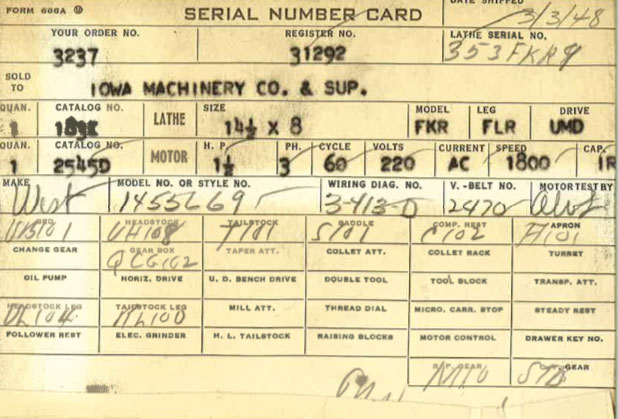 FORM 666A SERIAL NUMBER CARD DATE SHIPPED 3/3/48
YOUR ORDER NO. REGISTER NO. LATHE SERIAL NO.
3237 31292 353FKR9
SOLD TO IOWA MACHINERY CO. & SUP.
QUAN. CATALOG NO. LATHE SIZE MODEL LEG DRIVE
1 14½ X 8 FKR FLR UMD
QUAN. CATALOG NO. MOTOR H. P. PH. CYCLE VOLTS CURRENT SPEED CAP.
1 2545D 1½ 3 60 220 AC 1800 IR
MAKE MODEL NO. OR STYLE NO. WIRING DIAG. NO. V.-BELT NO. MOTOR TEST BY
West 1455669 3-413-D 2470
BED HEADSTOCK TAILSTOCK SADDLE COMP. REST APRON
UH108 T101 S101 C102 A101
CHANGE GEAR GEAR BOX TAPER ATT. COLLET ATT. COLLET RACK TURRET
QCG102
OIL PUMP HORIZ. DRIVE U. D. BENCH DRIVE DOUBLE TOOL TOOL BLOCK TRANSP. ATT.
HEADSTOCK LEG TAILSTOCK LEG MILL ATT. THREAD DIAL MICRO. CARR. STOP STEADY REST
HL104 TL100
FOLLOWER REST ELEC. GRINDER H. L. TAILSTOCK RAISING BLOCKS MOTOR CONTROL DRAWER KEY NO.
GEAR GEAR